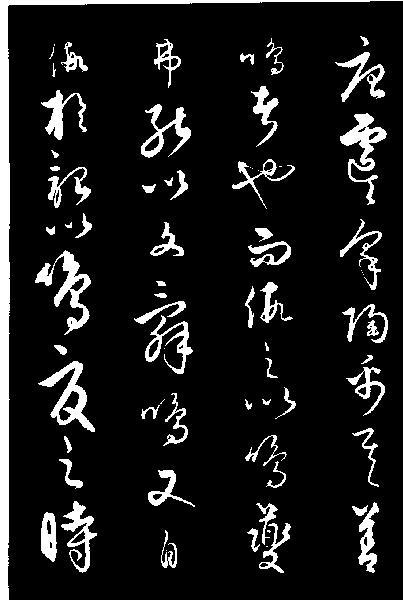 唐虞皋陶禹其善
鳴者也而假之以鳴夔
弗能以文辭鳴又自
假於韶以鳴夏之時